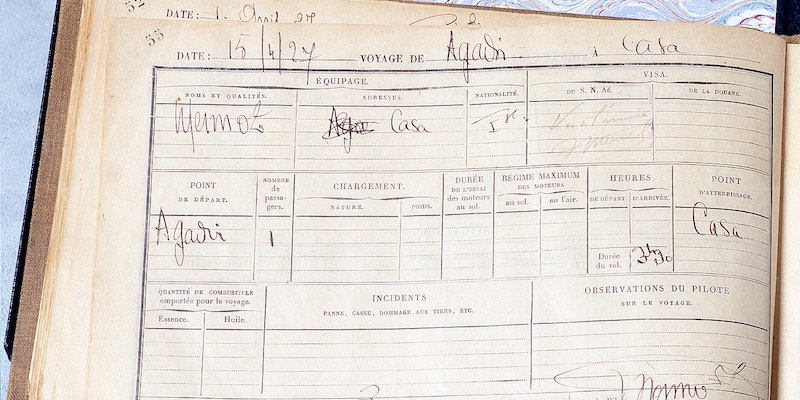 52
DATE: 1 Avril 27
55
DATE: 15/4/27 VOYAGE DE Agadir À Casa
ÉQUIPAGE. VISA.
NOMS ET QUALITÉS. ADRESSES. NATIONALITÉ. DU S. N. Aé. DE LA DOUANE.
Mermoz Casa
POINT DE DÉPART. NOMBRE de passagers. CHARGEMENT. DURÉE DE L'ESSAI des moteurs au sol. RÉGIME MAXIMUM DES MOTEURS HEURES POINT D'ATTERRISSAGE.
NATURE. POIDS. au sol. en l'air. DE DÉPART. D'ARRIVÉE.
Agadir 1 Casa
Durée du vol. 3h30
QUANTITÉ DE COMBUSTIBLE emportée pour le voyage. INCIDENTS OBSERVATIONS DU PILOTE
PANNE, CASSE, DOMMAGE AUX TIERS, ETC. SUR LE VOYAGE.
Essence. Huile.
J Mermoz